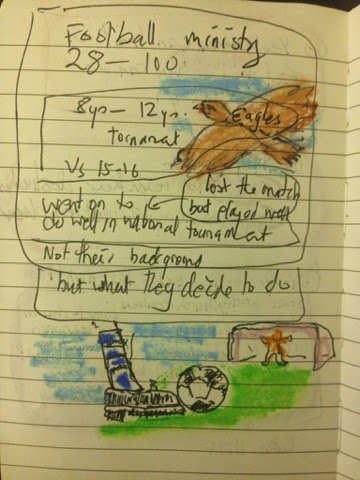 Football ministy
28 - 100
8yrs - 12yrs.
Eagles
tornamat
Vs 15-16
lost the match
but played well
went on to
do well in national tournament
Not their backgrond
but what they decide to do